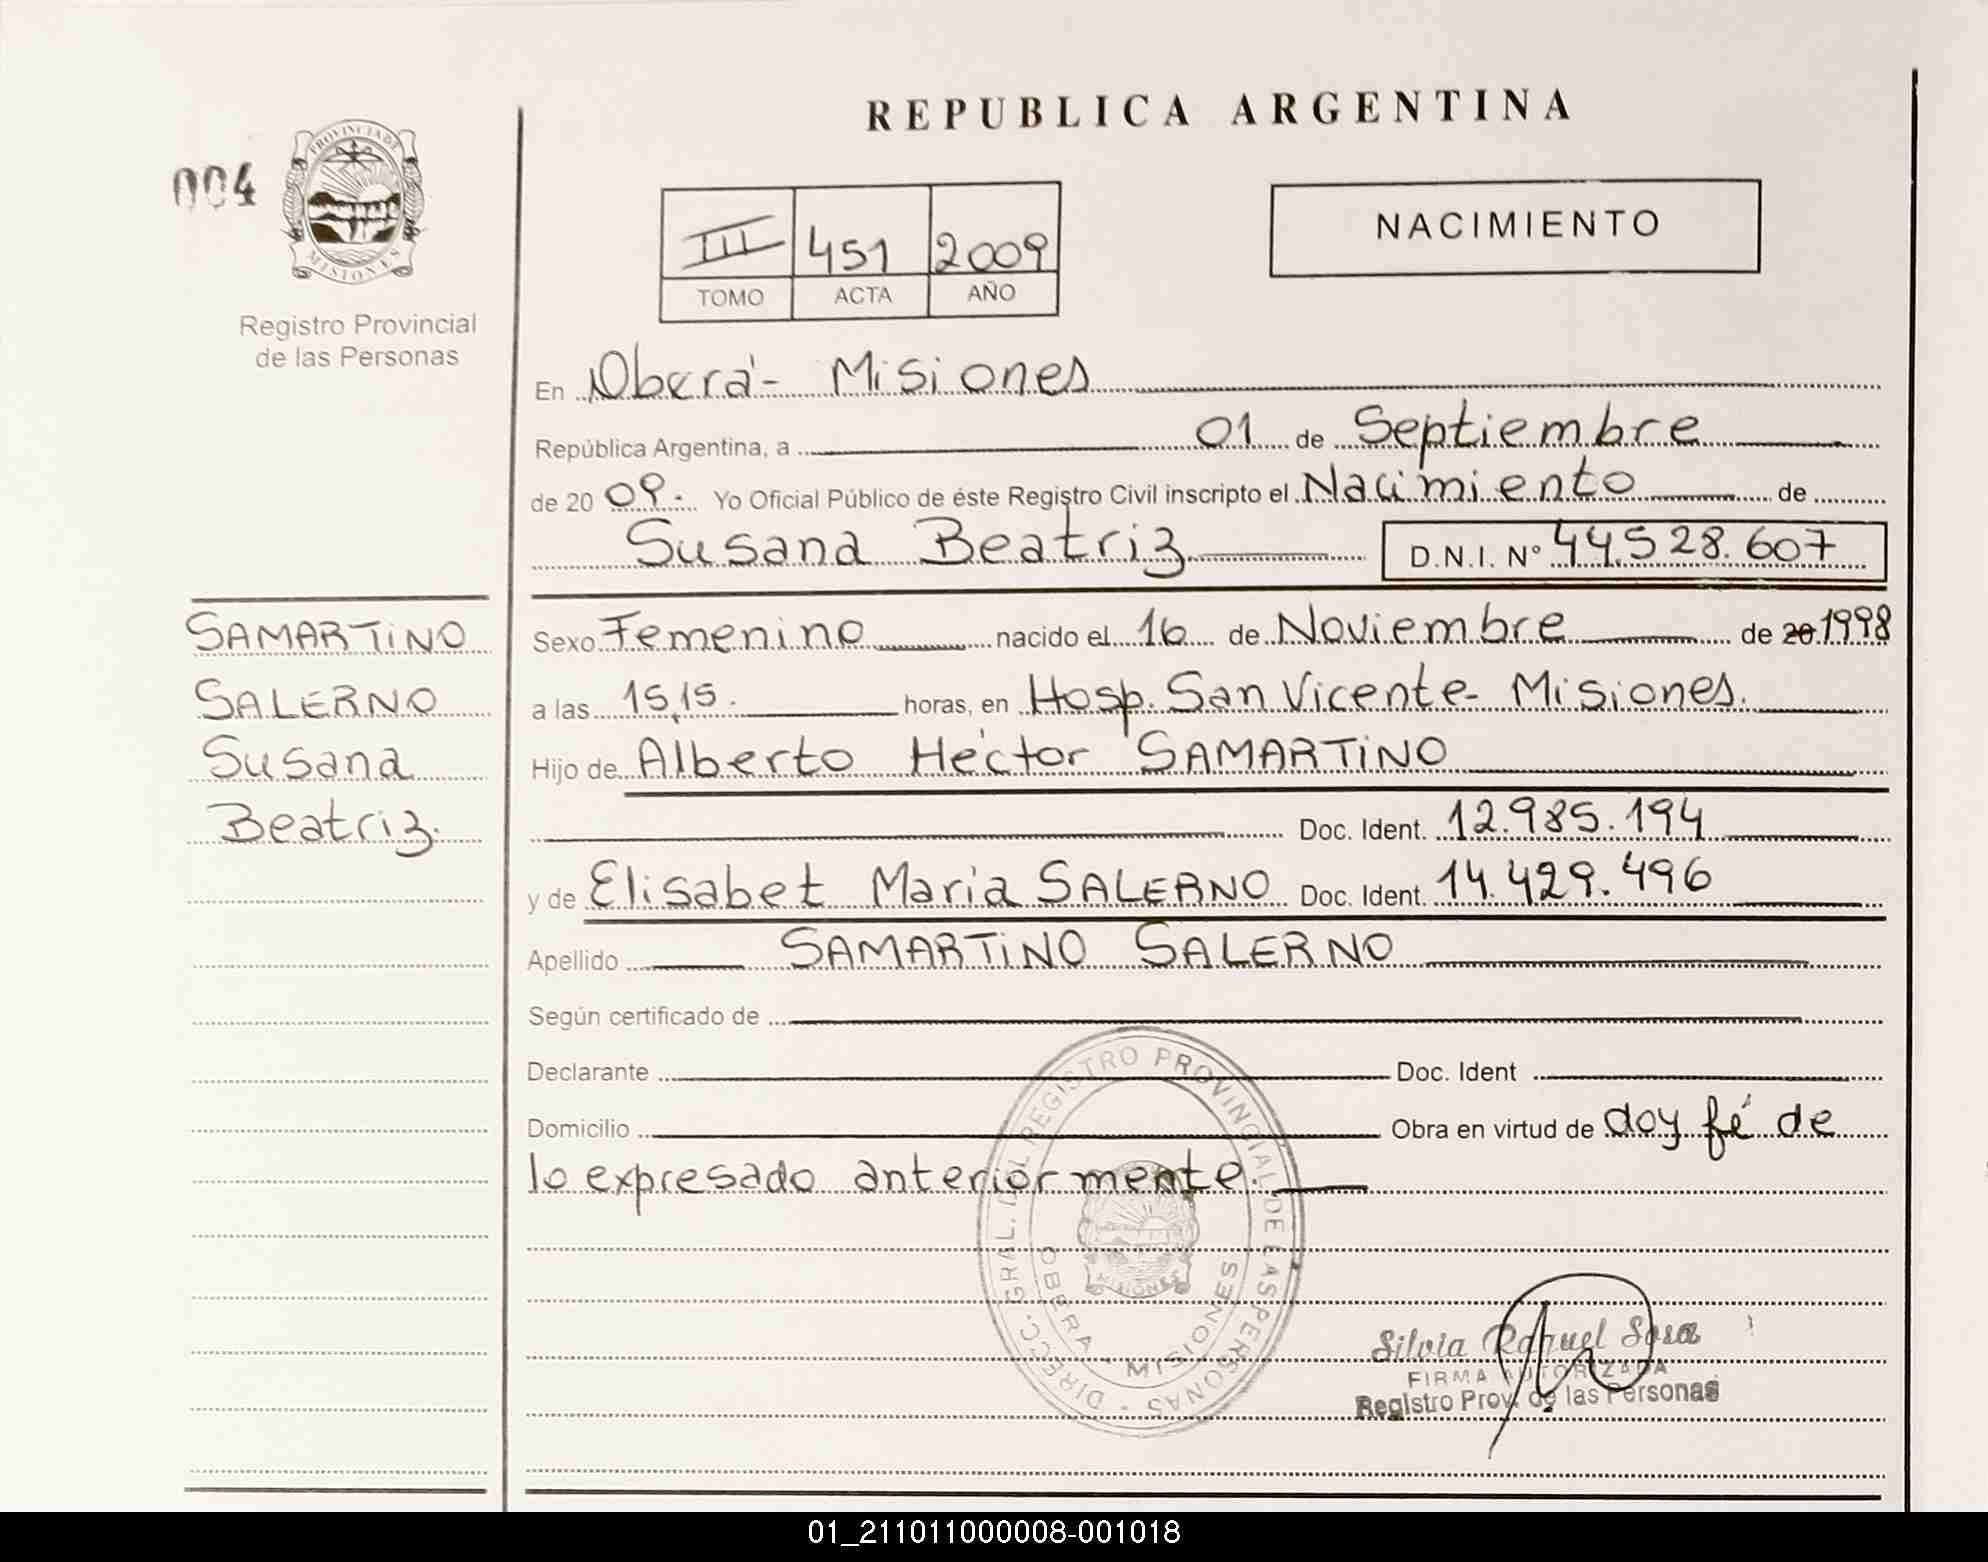 REPUBLICA ARGENTINA
004
PROVINCIA DE
MISIONES
Registro Provincial
de las Personas
III 451 2009
TOMO ACTA AÑO
NACIMIENTO
En Oberá - Misiones
República Argentina, a 01 de Septiembre
de 20 09. Yo Oficial Público de éste Registro Civil inscripto el Nacimiento de
Susana Beatriz D.N.I. Nº 44.528.607
SAMARTINO
SALERNO
Susana
Beatriz.
Sexo Femenino nacido el 16 de Noviembre de 20 1998
a las 15,15. horas, en Hosp. San Vicente - Misiones.
Hijo de Alberto Héctor SAMARTINO
Doc. Ident. 12.985.194
y de Elisabet Maria SALERNO Doc. Ident. 14.429.496
Apellido SAMARTINO SALERNO
Según certificado de
Declarante Doc. Ident
Domicilio Obra en virtud de doy fé de
lo expresado anteriormente.
DIRECC. GRAL. DEL REGISTRO PROVINCIAL DE LAS PERSONAS
OBERA - MISIONES
MISIONES
Silvia Raquel Sosa
FIRMA AUTORIZADA
Registro Prov. de las Personas
01_211011000008-001018